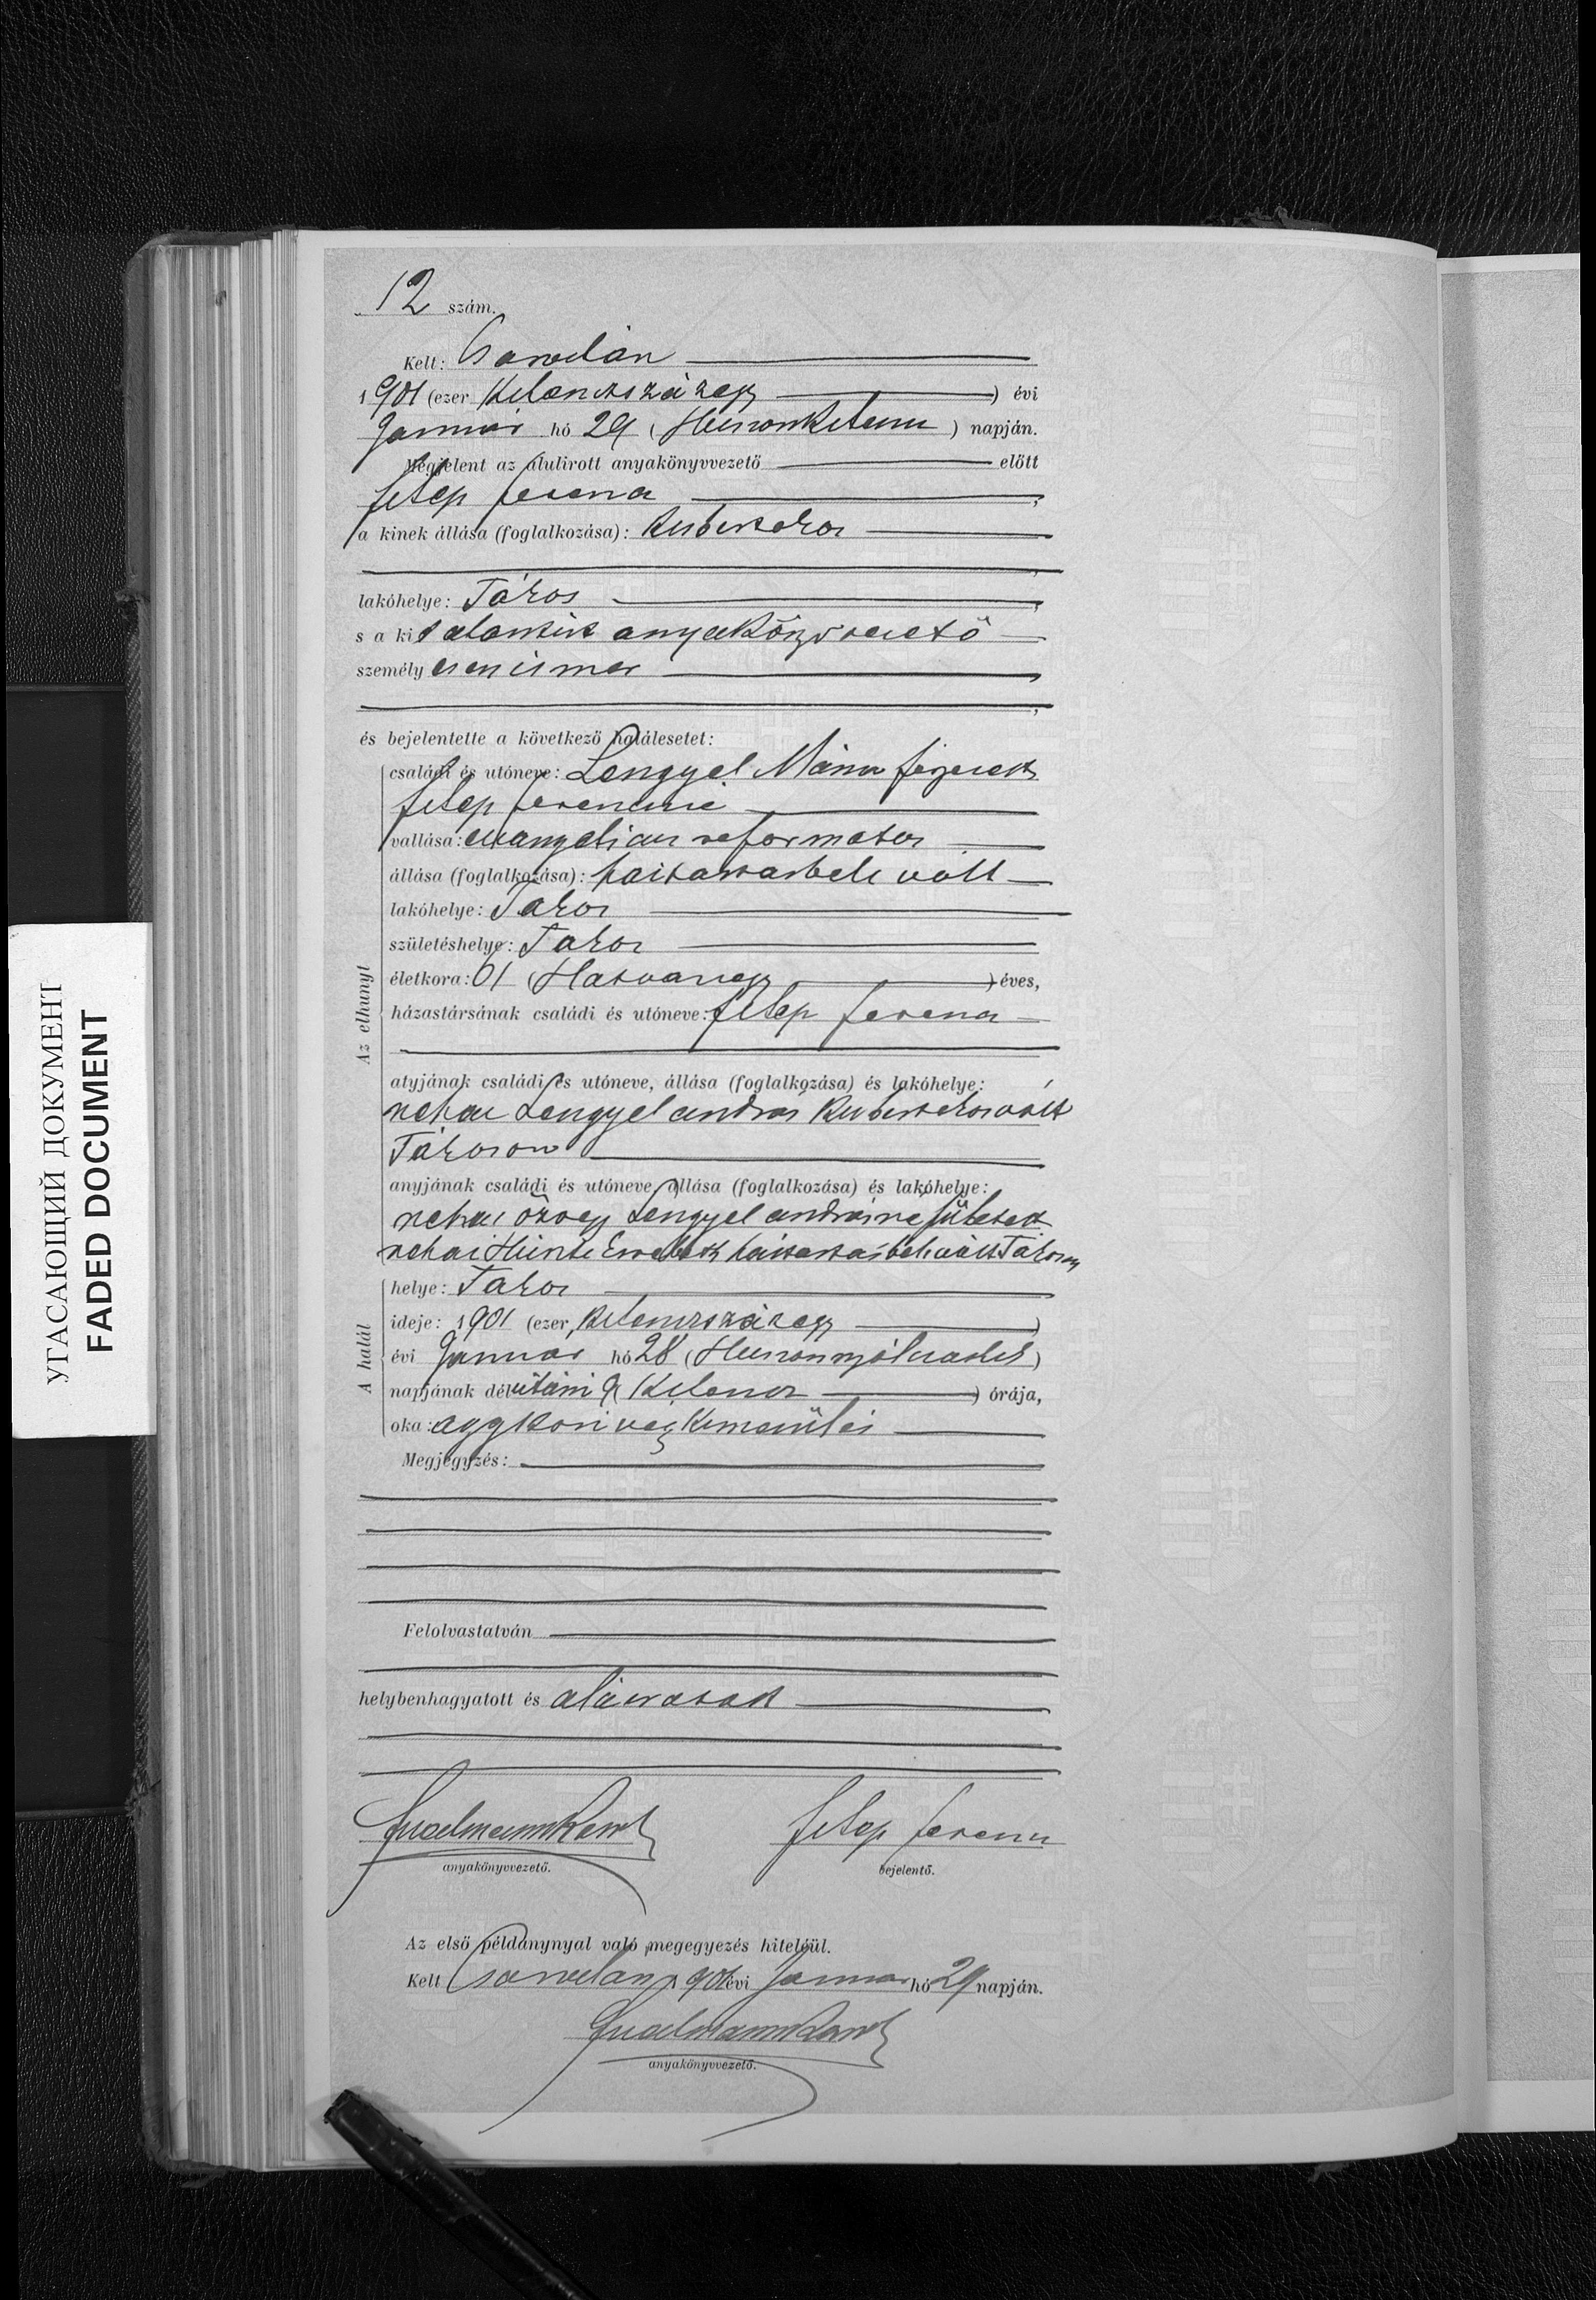 12 szám.
Kelt:
1901 (ezer kilenczszázegy) évi
Január hó 29 (Huszonkilencz) napján.
Megjelent az alulirott anyakönyvvezető előtt
Filep Ferencz,
a kinek állása (foglalkozása):
lakóhelye: Tákos,
s a kit alantirt anyakönyvvezető
személyesen ismer,
és bejelentette a következő halálesetet:
Az elhunyt
családi és utóneve: Lengyel Mária férjezett
Filep Ferenczné
vallása: evangelicus reformatus
állása (foglalkozása): háztartásbeli volt
lakóhelye: Tákos
születéshelye: Tákos
életkora: 61 (Hatvanegy) éves,
házastársának családi és utóneve: Filep Ferencz
atyjának családi és utóneve, állása (foglalkozása) és lakóhelye:
néhai Lengyel András volt
Tákoson
anyjának családi és utóneve, állása (foglalkozása) és lakóhelye:
néhai özvegy Lengyel Andrásné született
néhai Erzsébet háztartásbeli volt Tákoson
A halál
helye: Tákos
ideje: 1901 (ezer kilenczszázegy)
évi Január hó 28 (Huszonnyolczadik)
napjának délutáni 9 (Kilencz) órája,
oka: aggkori végkimerülés
Megjegyzés:
Felolvastatván
helybenhagyatott és aláiratott
anyakönyvvezető.
Filep Ferencz
bejelentő.
Az első példánynyal való megegyezés hiteléül.
Kelt 1901 évi Január hó 29 napján.
anyakönyvvezető.
УГАСАЮЩИЙ ДОКУМЕНТ
FADED DOCUMENT